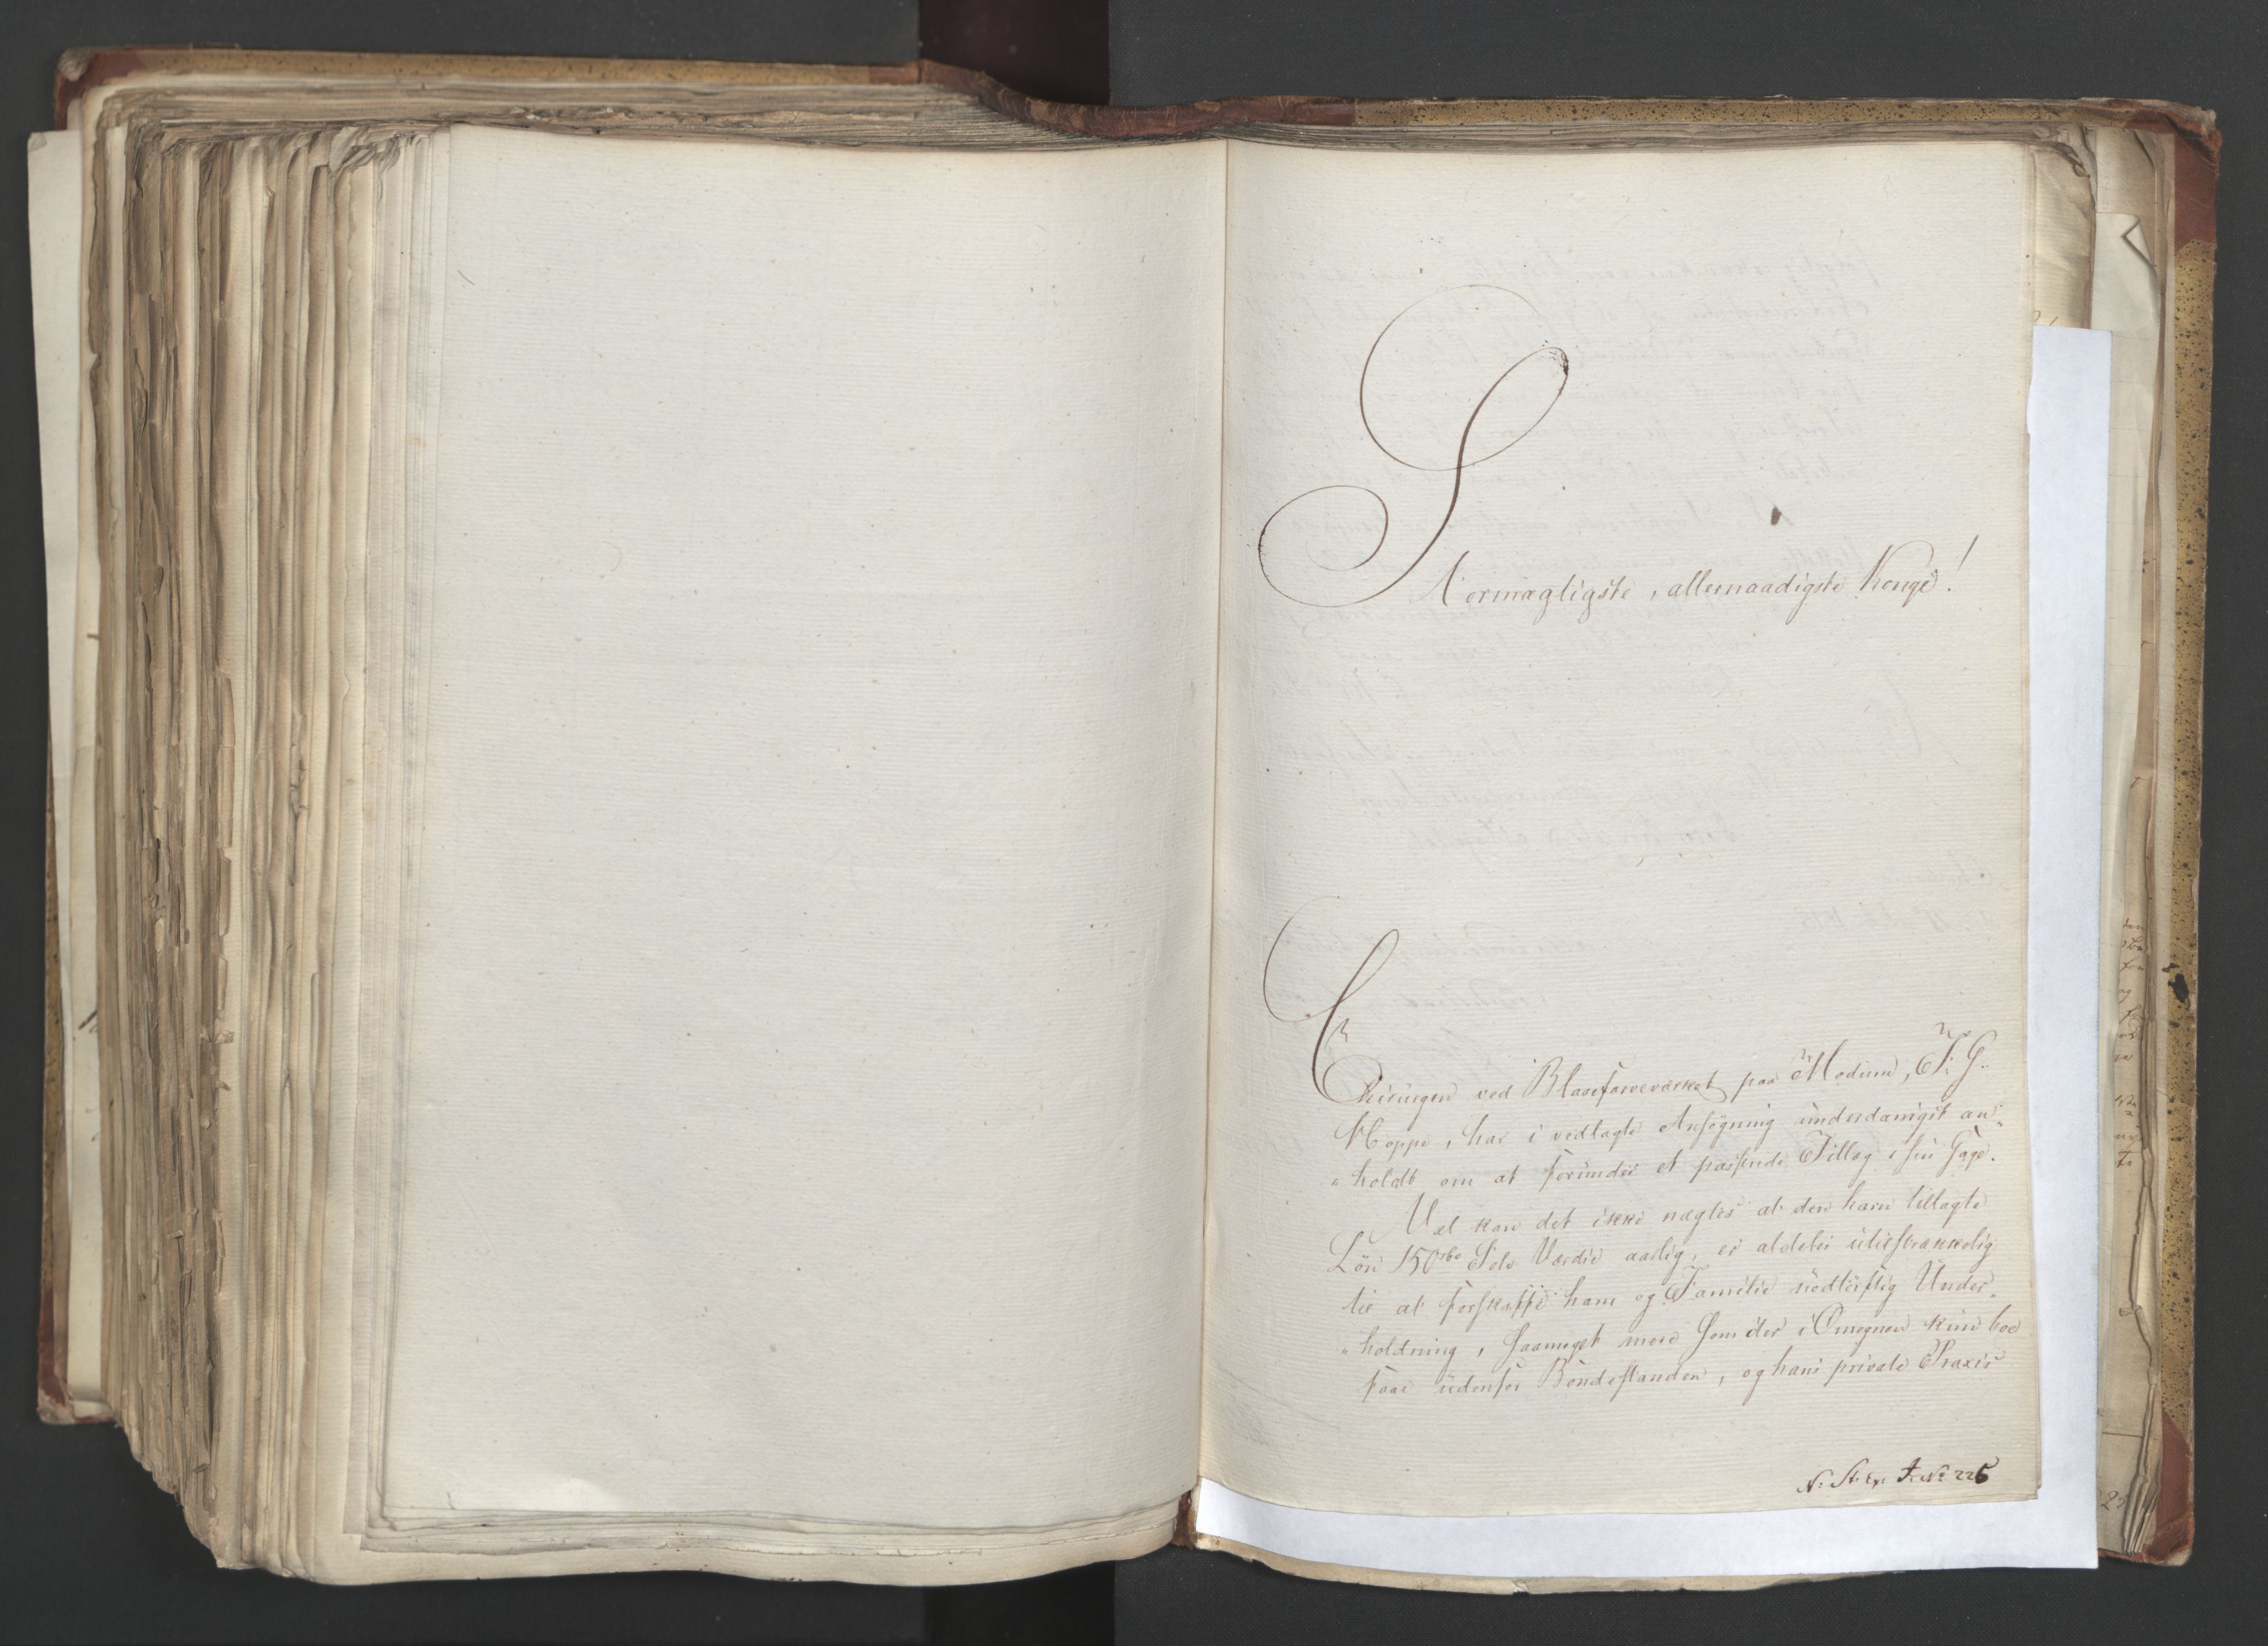 Stormægtigste, allernaadigste Konge!
Chirurgen ved Blaafarveværket paa Modum, J: G.
Hoppe, har i vedlagte Ansøgning underdanigst an„
„holdt om at forundes et passende Tillæg i sin Gage.
Vel kan det ikke nægtes at den ham tillagte
Løn 150 rbd Sølv Værdie aarlig, er aldeles utilstrækkelig
til at forskaffe ham og Familie nødtørftig Under„
„holdning, saameget mere som der i Omegnen kun boe
faae udenfor Bondestanden, og hans private Praxis
N: St: Ex: J: No 226